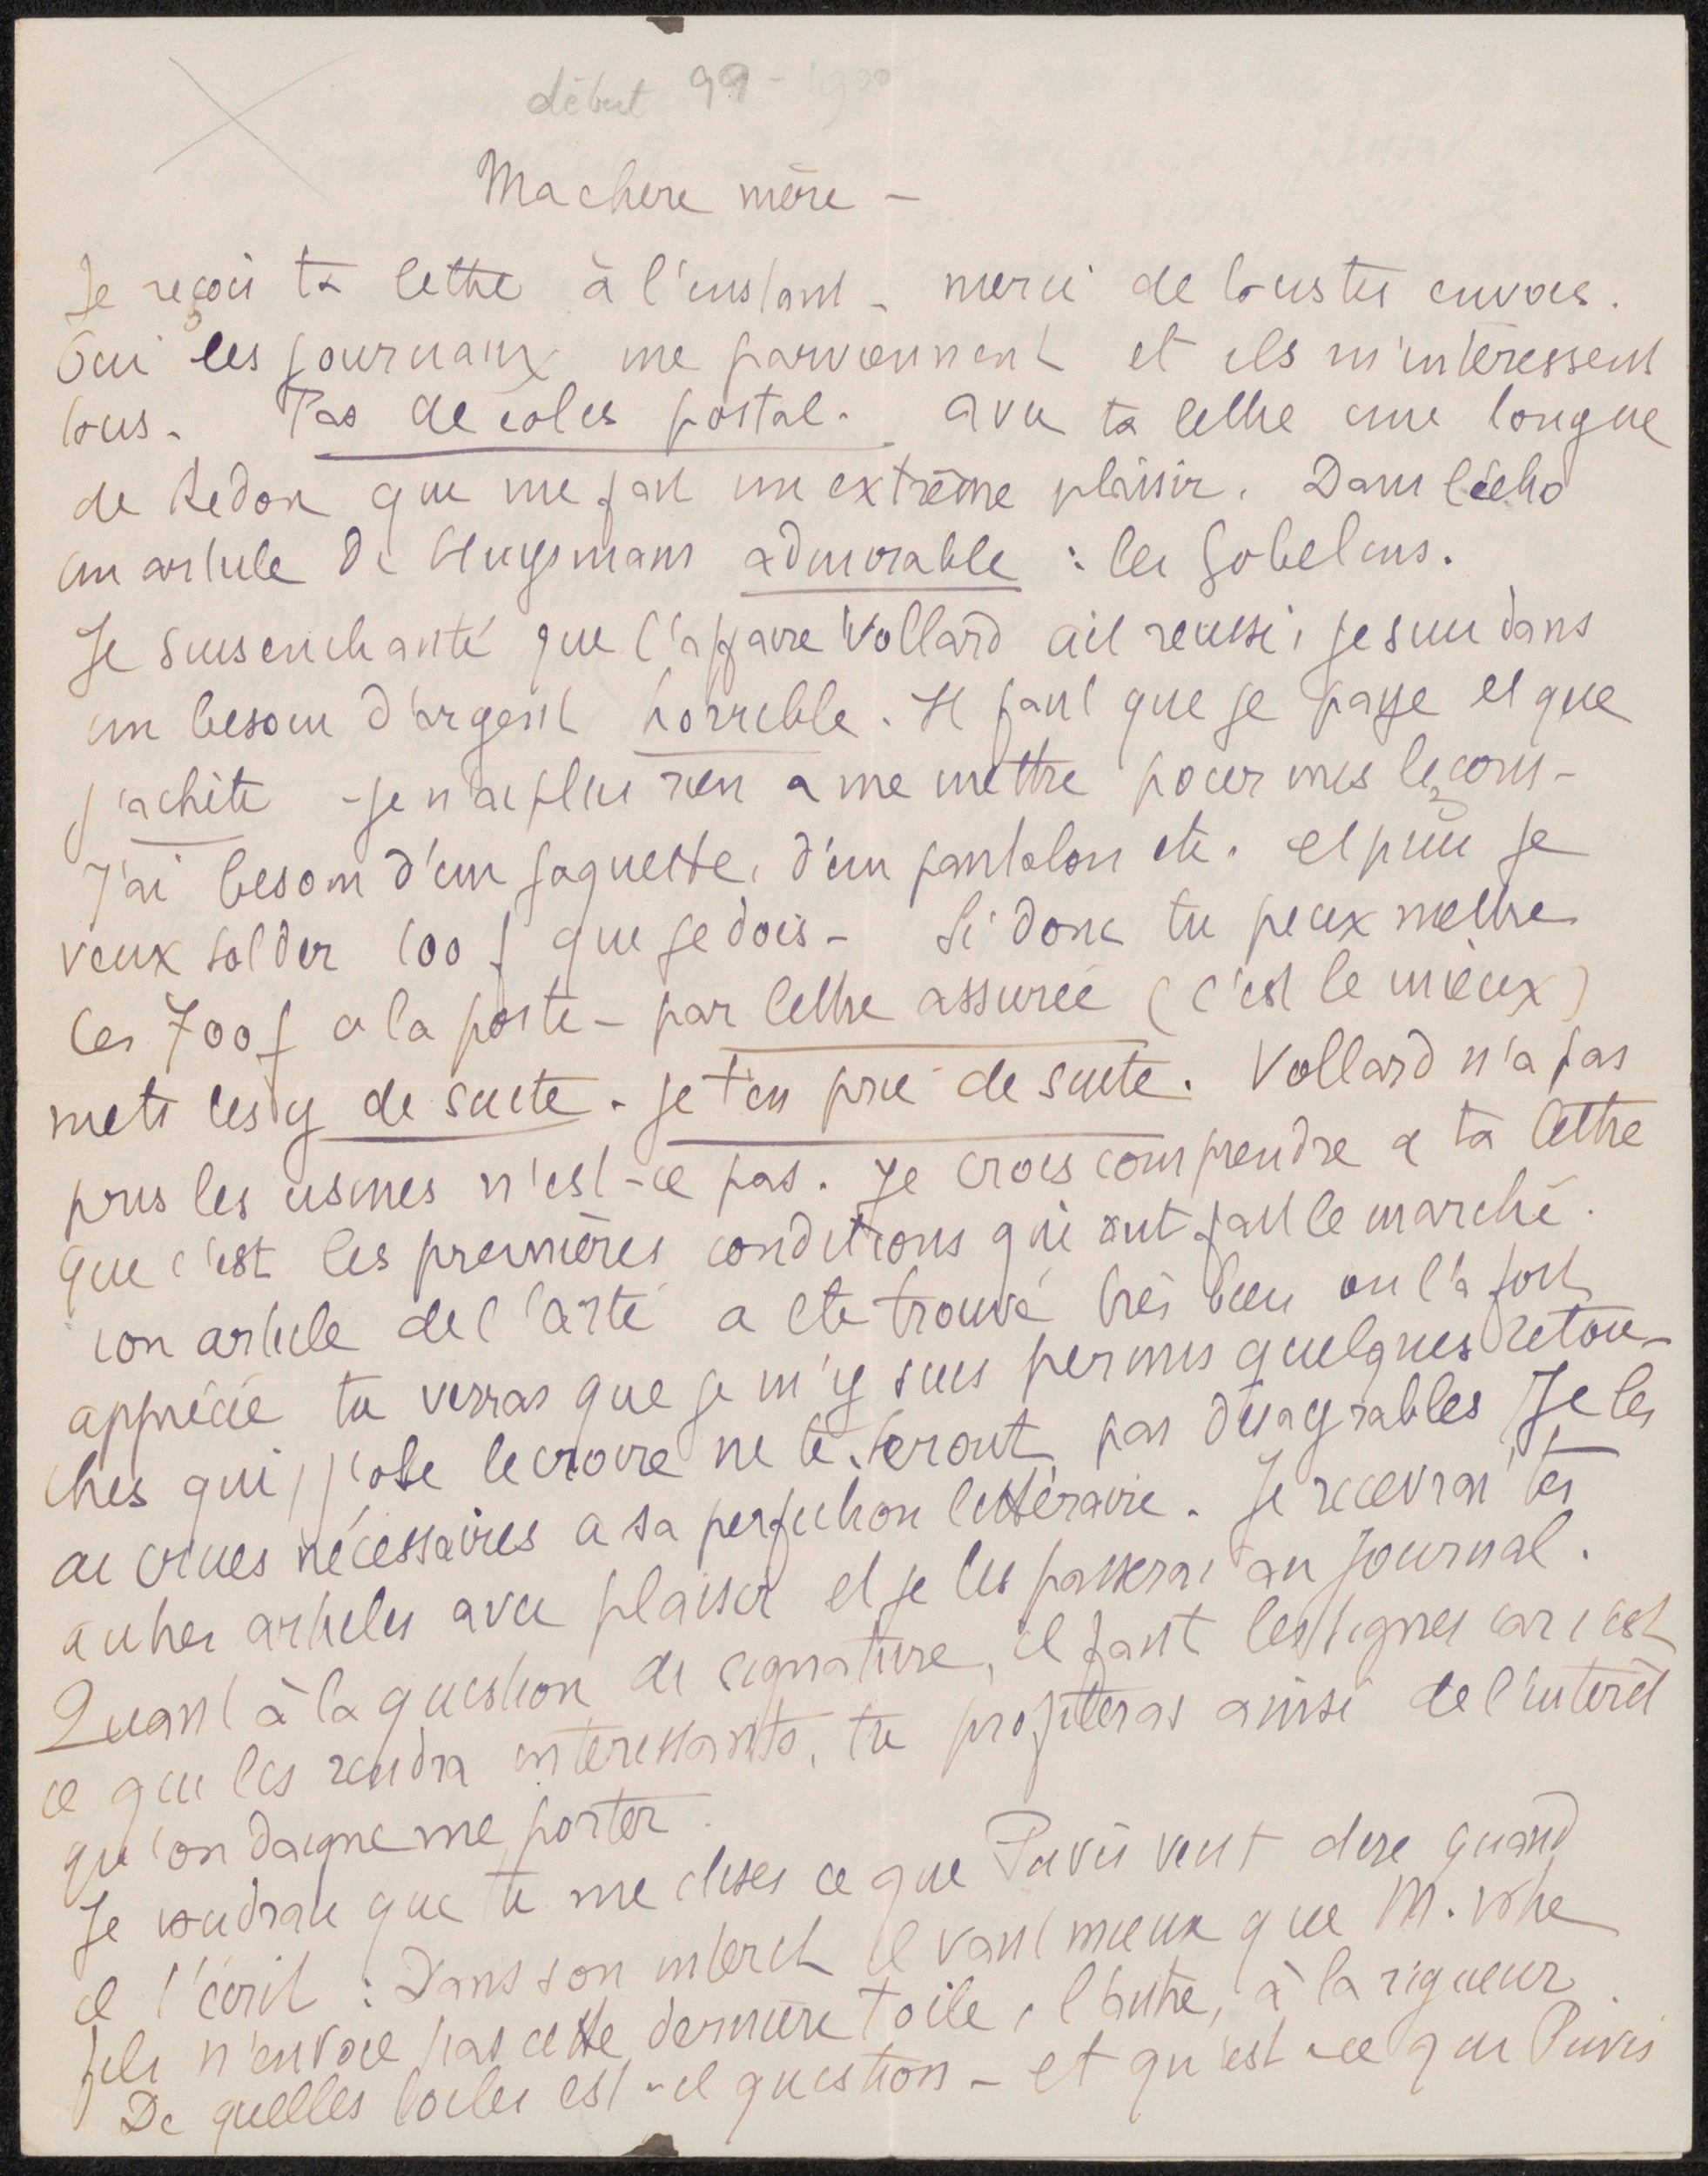 début 99 - 1900
Ma chere mère -
Je reçois ta lettre à l'instant - merci de tous tes envois.
Oui les journaux me parviennent et ils m'intéressent
tous. Pas de colis postal. avec ta lettre une longue
de Redon qui me fait un extrême plaisir. Dans l'écho
un article de Huysmans admirable : les Gobelins.
Je suis enchanté que l'affaire Vollard ait reussi, je suis dans
un besoin d'argent horrible. Il faut que je paye et que
j'achète - je n'ai plus rien a me mettre pour mes leçons -
J'ai besoin d'un jaquette, d'un pantalon etc. et puis je
veux solder 100 f que je dois - Si donc tu peux mettre
les 700 f a la poste - par lettre assurée (c'est le mieux)
mets les y de suite. je t'en prie de suite. Vollard n'a pas
pris les usines n'est-ce pas. Je crois comprendre a ta lettre
que c'est les premières conditions qui ont fait le marché.
ton article de l'arte a ete trouvé très bien on l'a fort
apprécié tu verras que je m'y suis permis quelques retou-
ches qui, j'ose le croire ne te seront pas désagrables Je les
ai crues nécessaires a sa perfection littéraire. Je recevrai tes
autres articles avec plaisir et je les passerai au journal.
Quant à la question de signature, il faut les signer car c'est
ce qui les rendra interessants, tu profiteras ainsi de l'intérêt
qu'on daigne me porter.
Je voudrais que tu me dises ce que Puvis veut dire quand
il t'écrit : Dans son interet il vaut mieux que M. votre
fils n'envoie pas cette dernière toile, l'autre, à la rigueur.
De quelles toiles est-il question - et qu'est-ce que Puvis